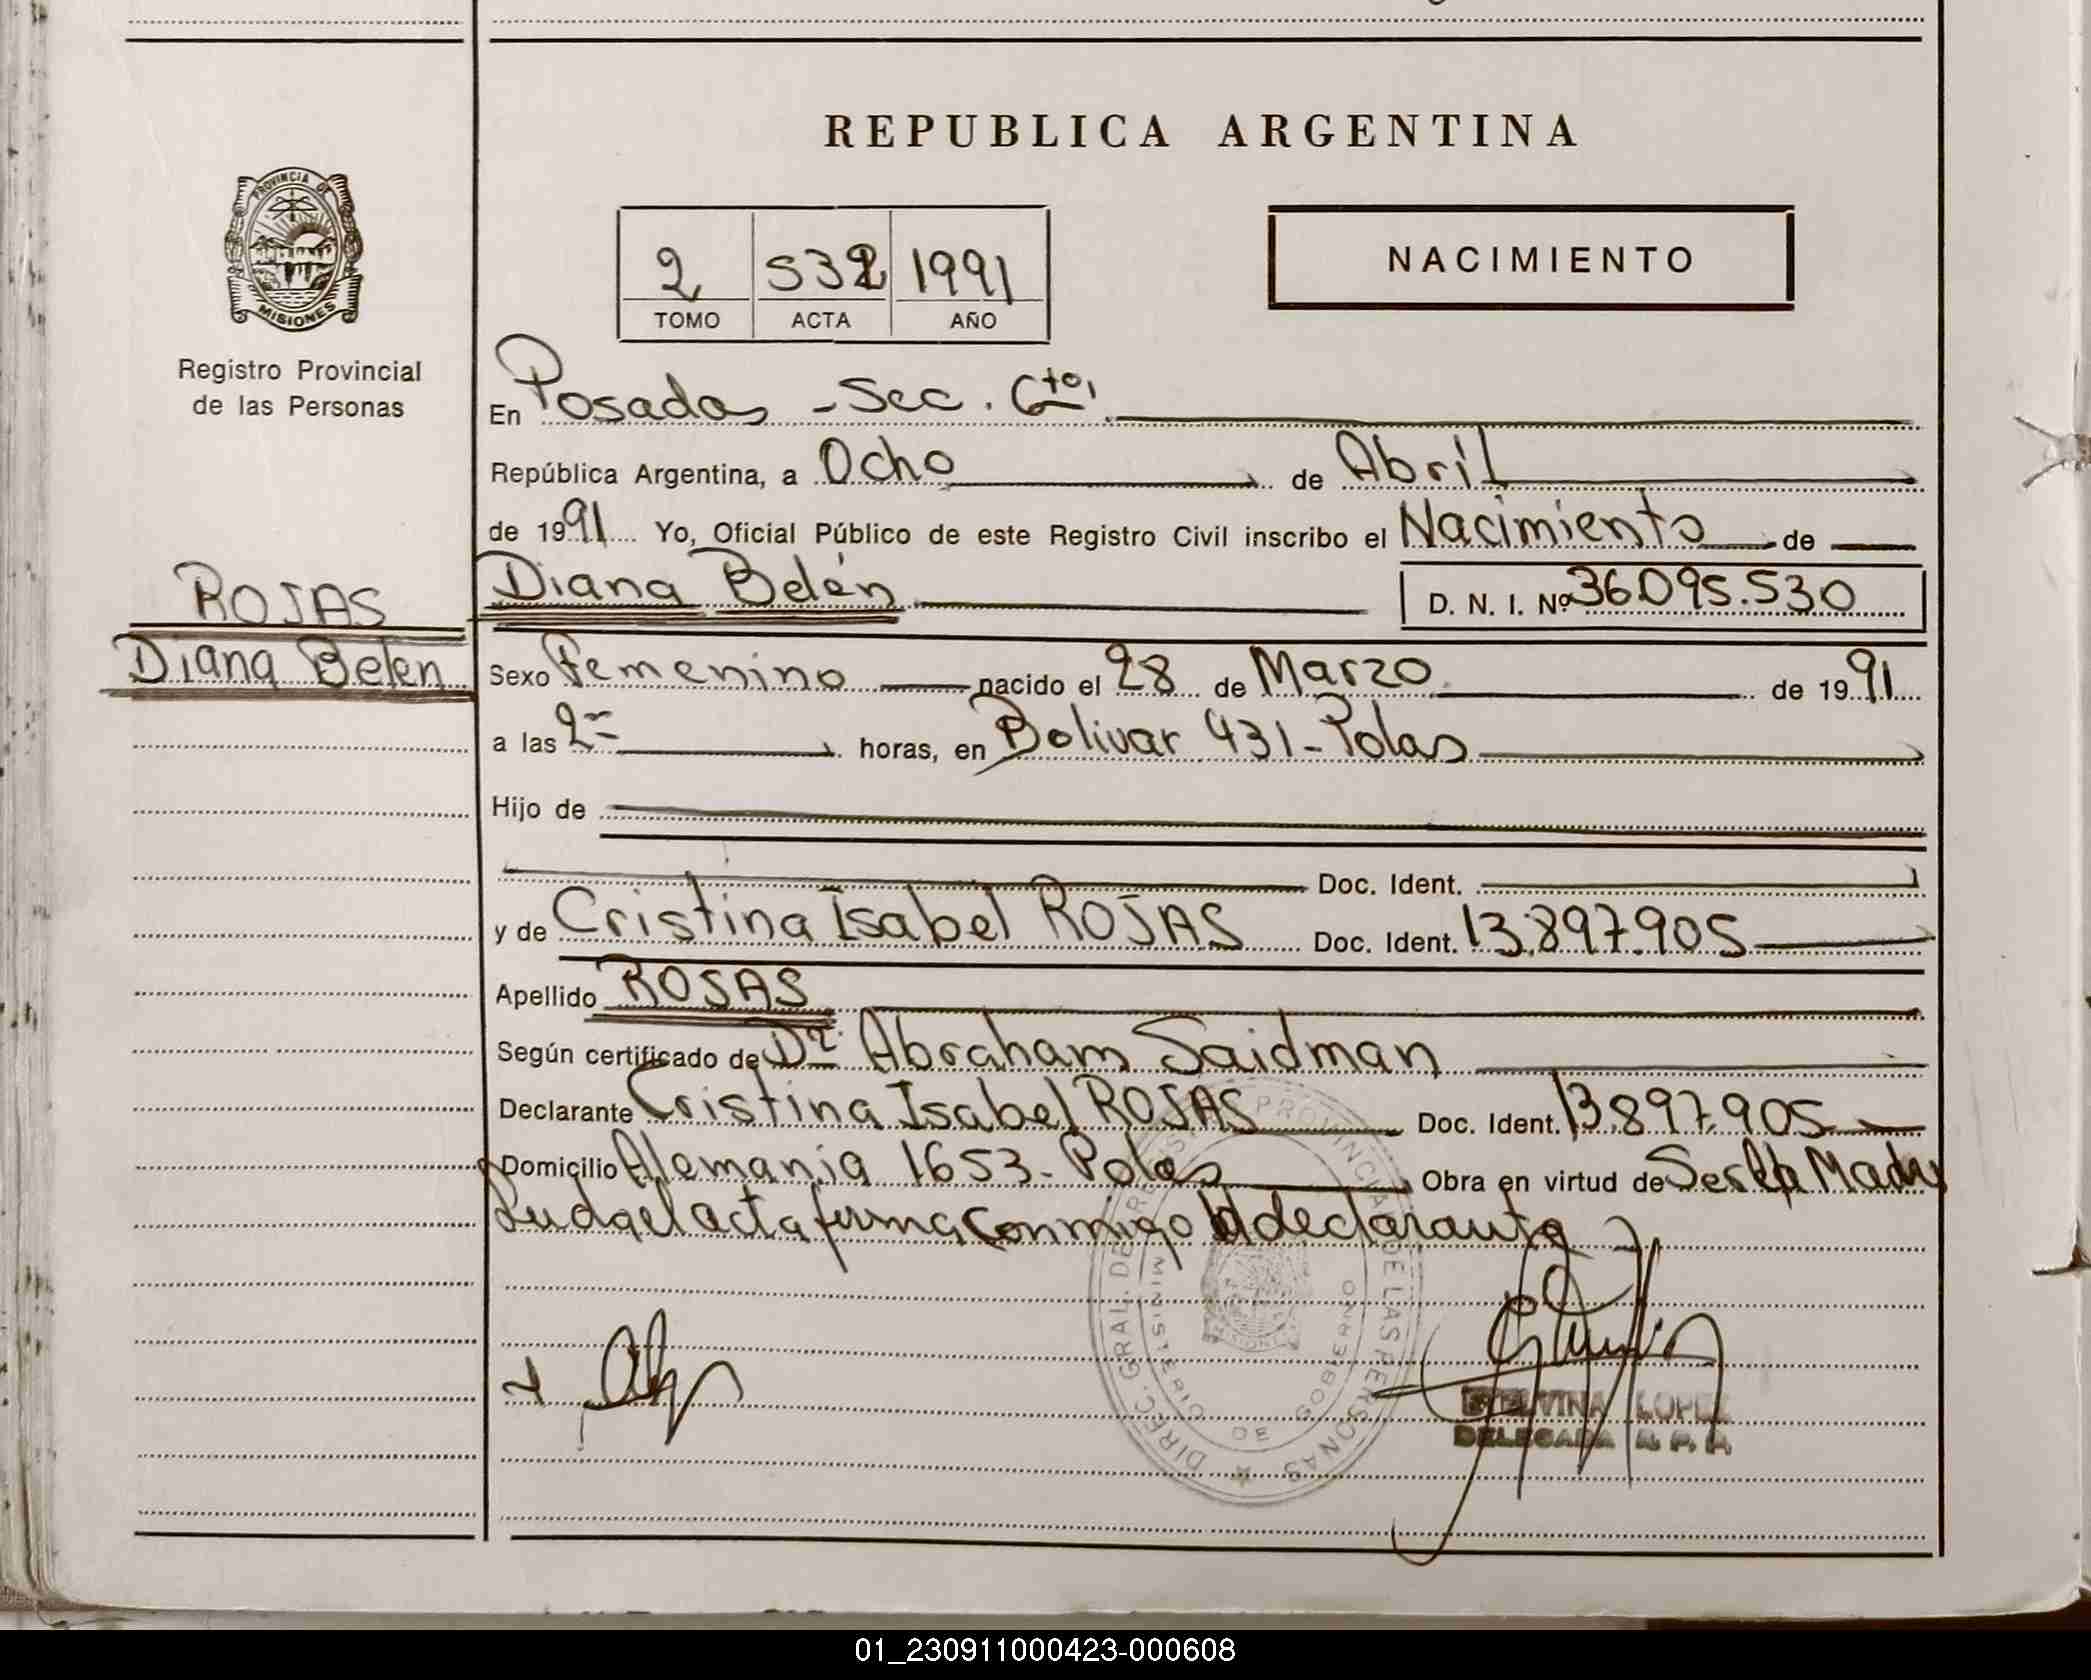 REPUBLICA ARGENTINA
PROVINCIA DE
MISIONES
Registro Provincial
de las Personas
2 532 1991
TOMO ACTA AÑO
NACIMIENTO
En Posadas - Sec. 6ta.
República Argentina, a Ocho de Abril
de 1991 Yo, Oficial Público de este Registro Civil inscribo el Nacimiento de
ROJAS
Diana Belén
D. N. I. Nº 36.095.530
Diana Belen
Sexo Femenino nacido el 28 de Marzo de 1991
a las 2 horas, en Bolivar 431 - Pdas
Hijo de
Doc. Ident.
y de Cristina Isabel ROJAS Doc. Ident. 13.897.905
Apellido ROJAS
Según certificado de Dr Abraham Saidman
Declarante Cristina Isabel ROJAS Doc. Ident. 13.897.905
Domicilio Alemania 1653 - Pdas Obra en virtud de Ser la Madre
Leida el acta firma conmigo la declarante
DIREC. GRAL. DE REGISTRO PROVINCIAL DE LAS PERSONAS
MINISTERIO DE GOBIERNO
LOPEZ
DELEGADA R. P. P.
01_230911000423-000608